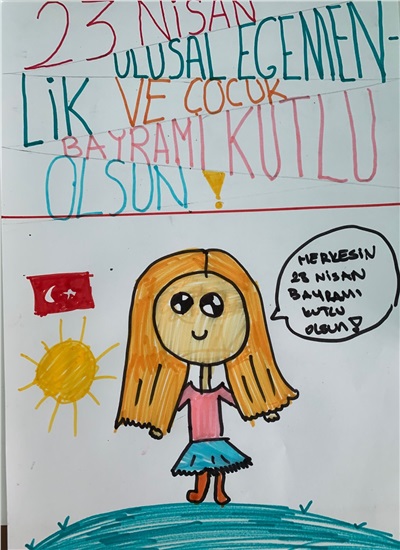 23 NİSAN
ULUSAL EGEMEN-
LİK VE ÇOCUK
BAYRAMI KUTLU
OLSUN!
HERKESİN
23 NİSAN
BAYRAMI
KUTLU
OLSUN!